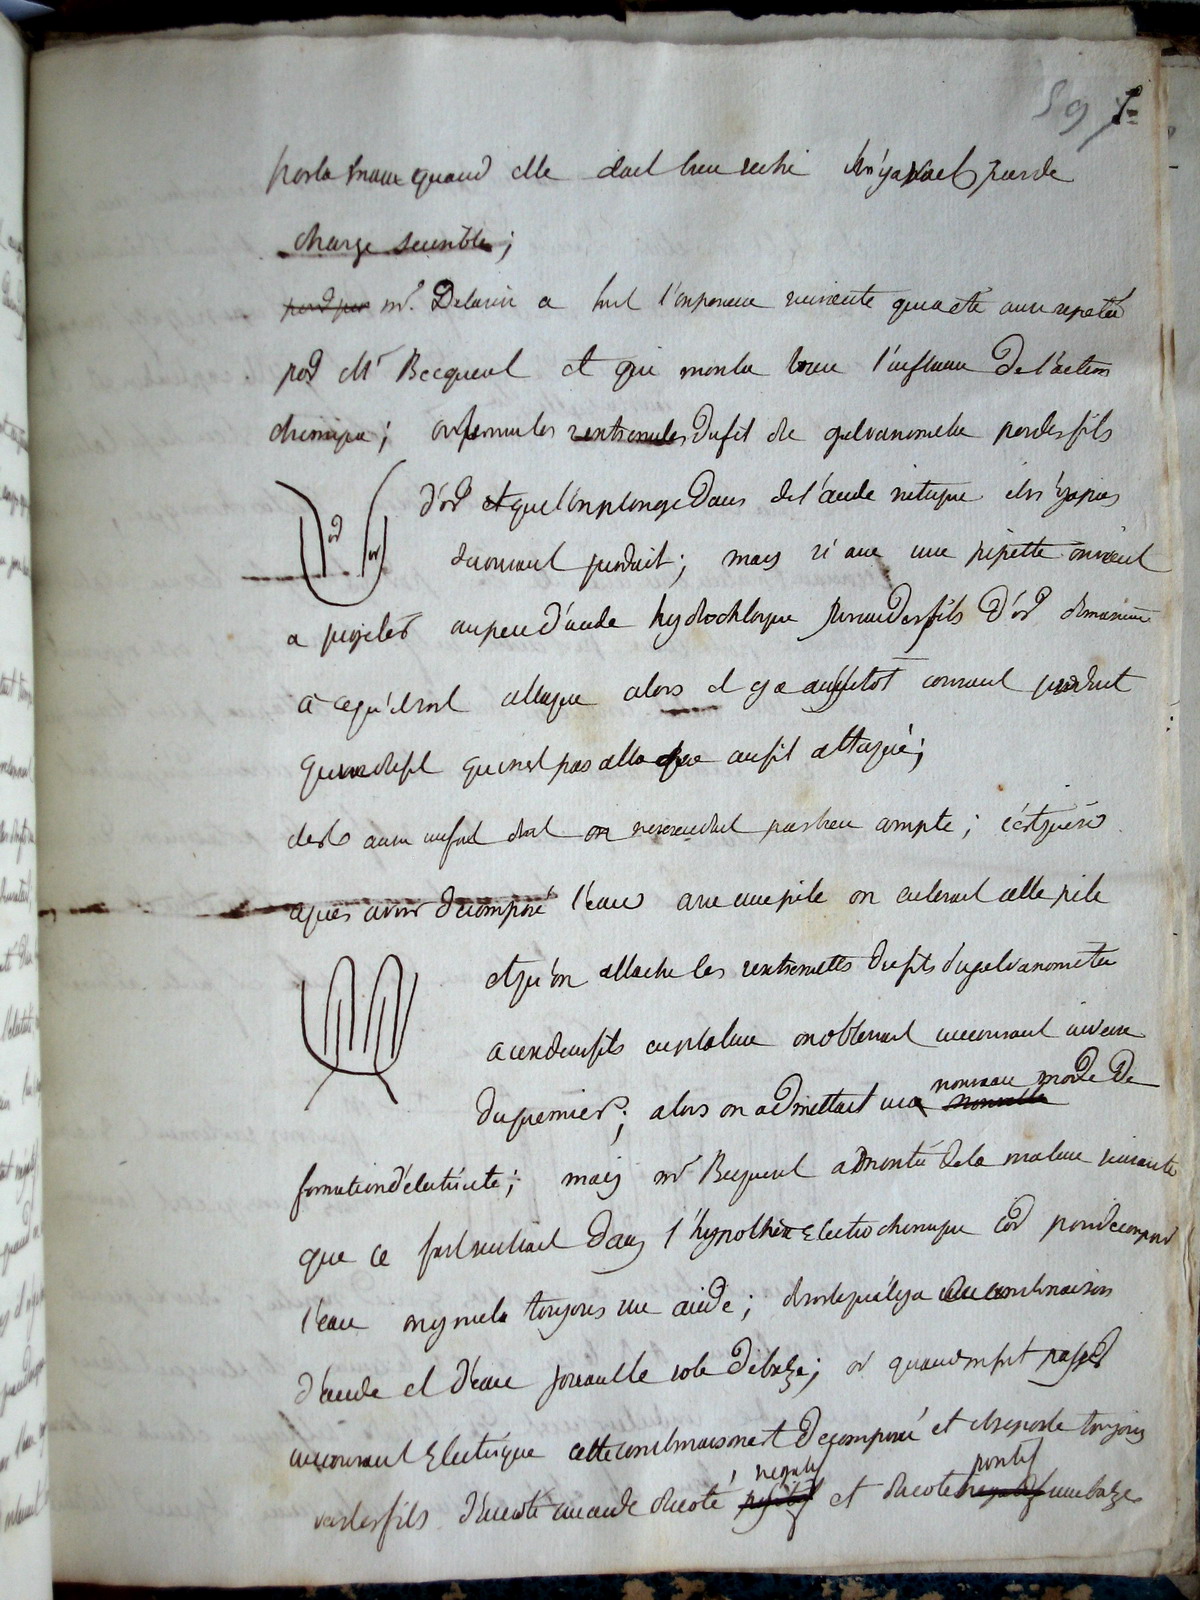 59
quand elle était bien sechée il n'y avait pas de
charge sensible;
mr. Delarive a fait l'experience suivante qui a été aussi repetée
par Mr Becquerel et qui montre bien l'influence de l'action
chimique; les extremités du fil de galvanometre par des fils
d'or et que l'on plonge dans de l'acide nitrique il n'y a pas
de courant produit; mais si avec une pipette on vient
a projeter un peu d'acide hydrochlorique sur un des fils d'or de maniere
a ce qu'il soit attaqué alors il y a aussitot courant produit
qui va du fil qui n'est pas attaqué au fil attaqué;
c'est aussi un fait dont on ne se rendait pas bien compte; c'est que si
après avoir décomposé l'eau avec une pile on enlevait cette pile
et qu'on attache les extremités du fils du galvanometre
a ces deux fils en platine on obtenait un courant inverse
du premier; alors on admettait un nouveau mode de
formation d'électricité; mais mr Becquerel a montré de la maniere suivante
que ce fait rentrait dans l'hypothèse Electro chimique car pour decomposer
l'eau on y mele toujours un acide; de sorte qu'il y a une combinaison
d'acide et d'eau jouant le role de baze; or quand on fait passer
un courant Electrique cette combinaison est decomposée et il se porte toujours
vers les fils d'un coté un acide du coté negatif et du coté positif une baze
or
or